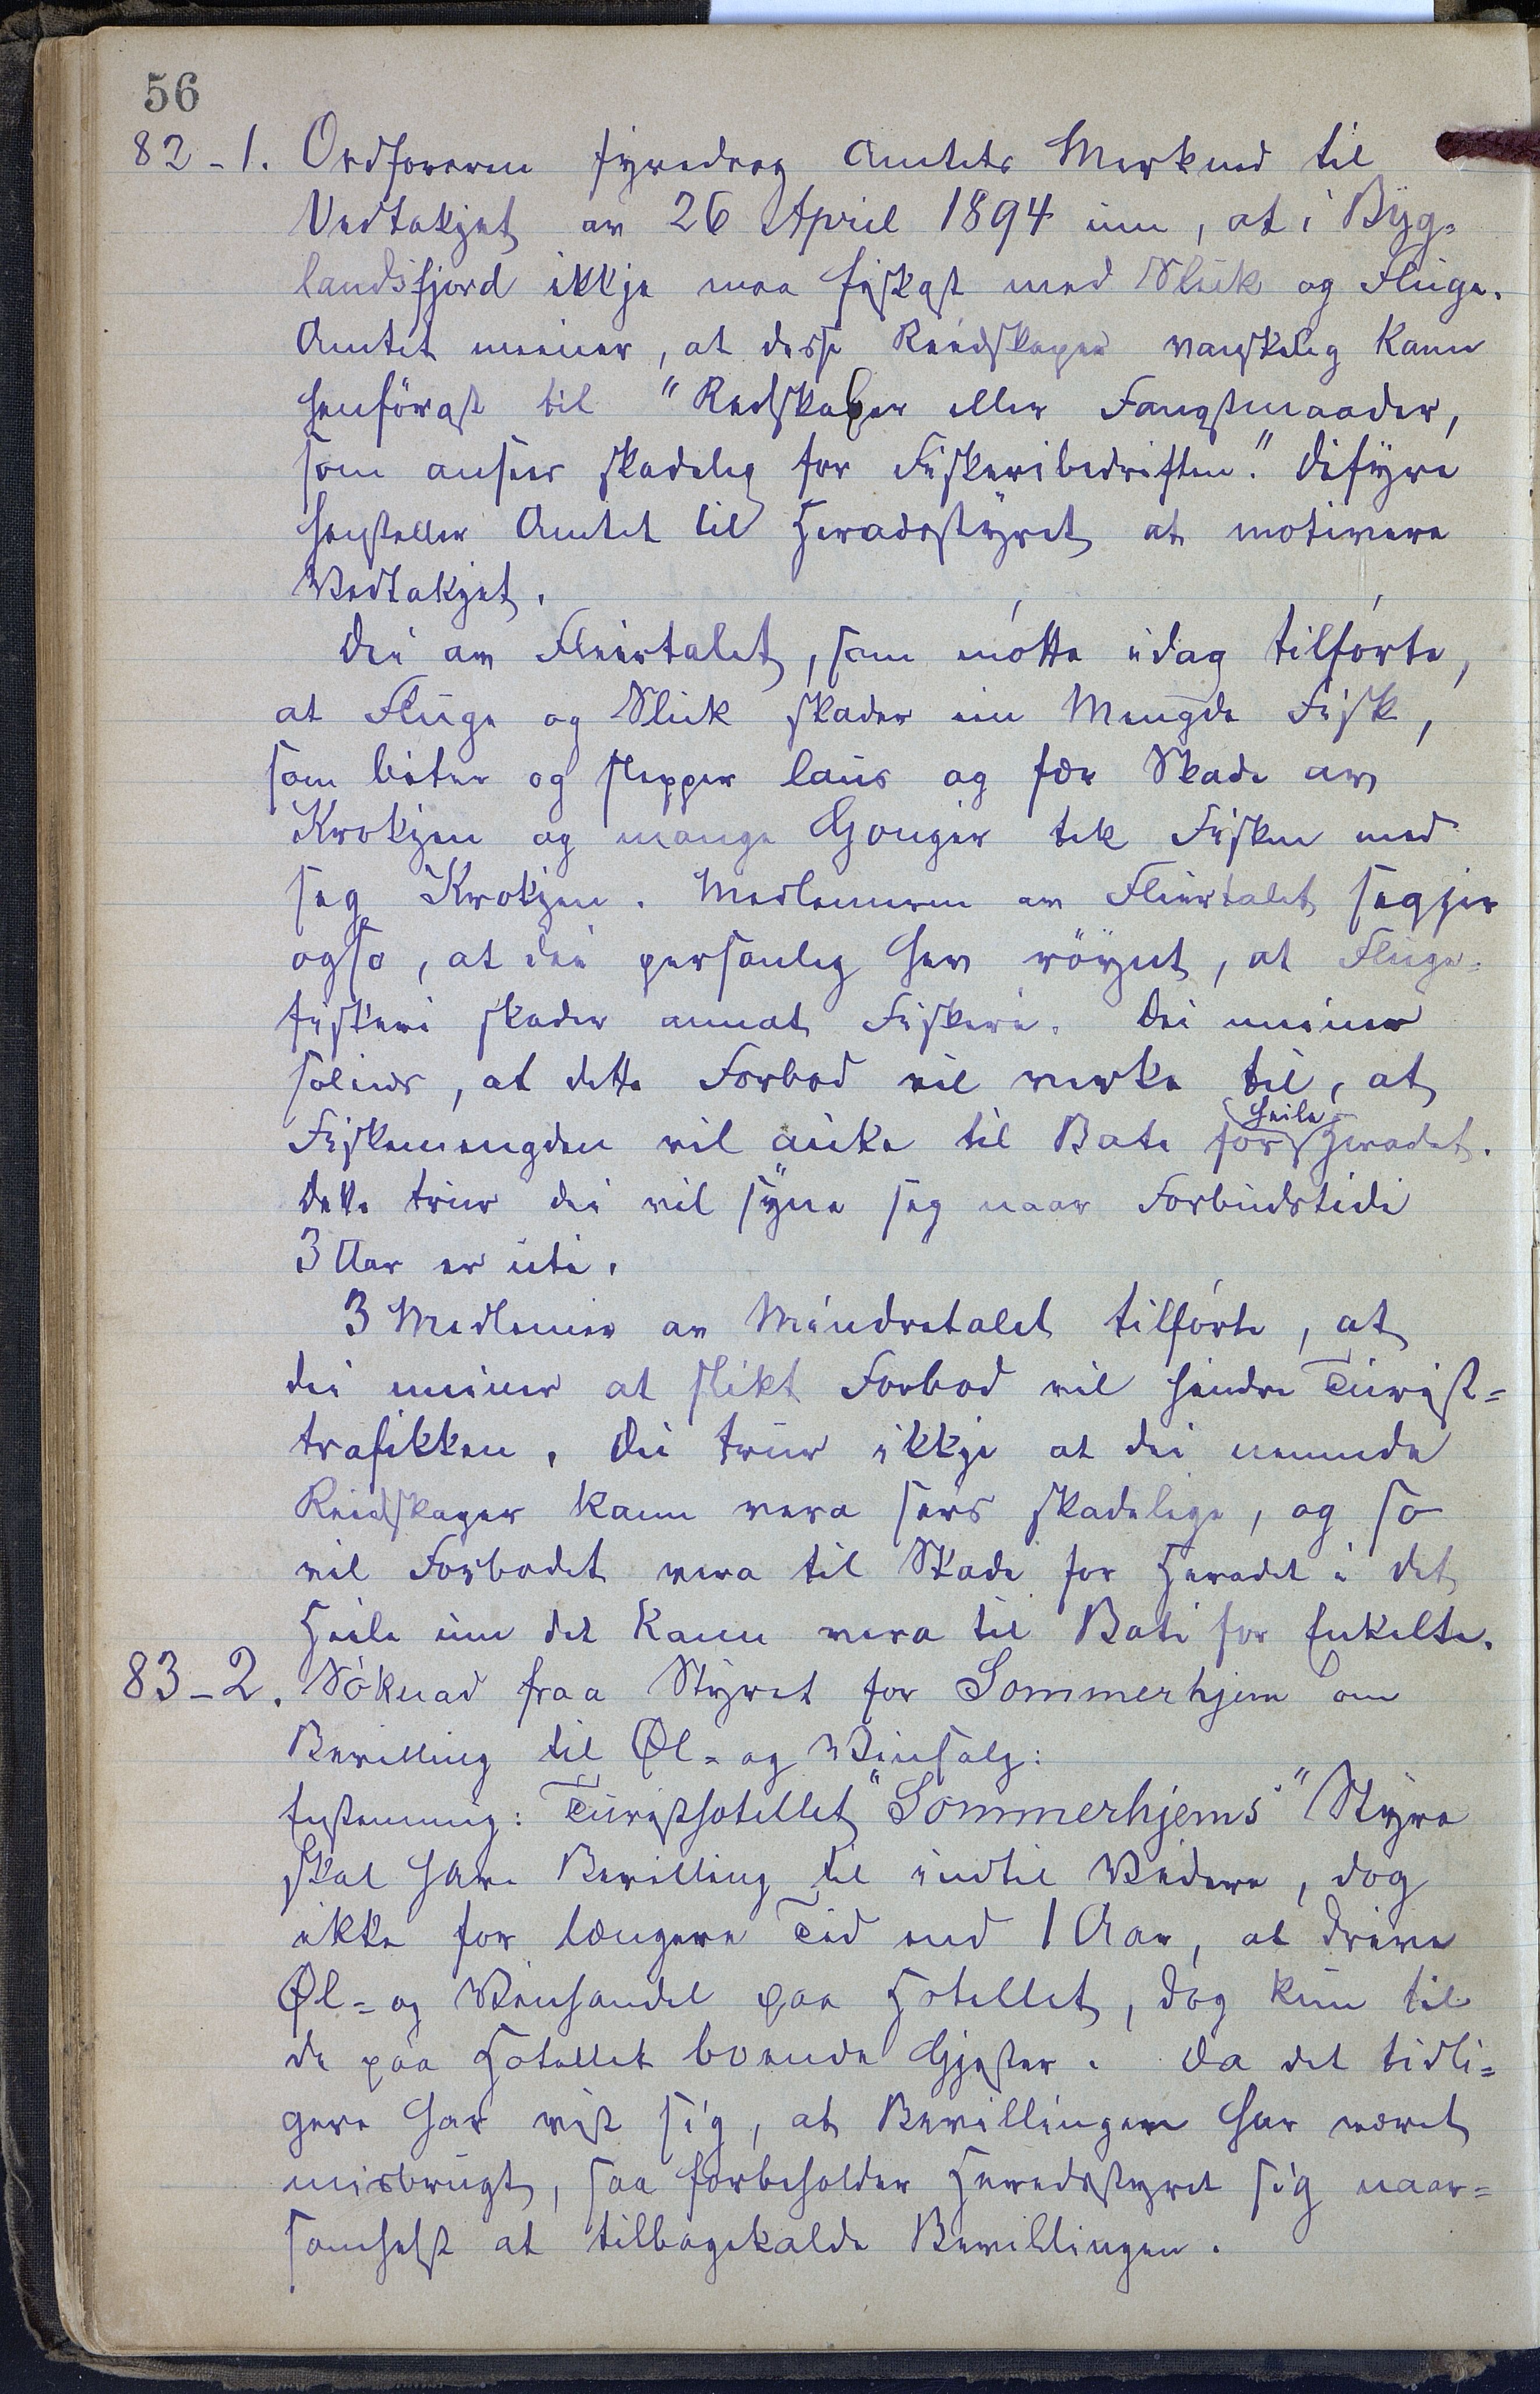 56
82-1. Ordføraren fyredrog Amtets Merknad til
Vedtakjet av 26 April 1894 um, at i Byg=
landsfjord ikkje maa fiskast med Sluk og Fluga.
Amtet meiner, at desse Reidskapar vanskeleg kann
henføras til "Redskaber eller Fangstmaader,
som ansees skadelig for Fiskeribedriften." Difyre
henstiller Amtet til Heradsstyret at motivera
Vedtakjet.
Dei av Fleirtalet, som møtte idag tilførte,
at Fluga og Sluk skader ein Mengde Fisk,
som biter og slepper laus og fær Skade av
Krokjen og mange Gonger tek Fisken med
seg Krokjen. Medlemmerne av Fleirtalet segjer
ogso, at dei personleg hev røynt, at Fluge=
fiskeri skader annat Fiskeri. Dei meiner
soleids, at dette Forbod vil verka til, at
Fiskemengden vil auka til Bate for heile Heradet.
Dette trur dei vil syna seg naar Forbudstidi
3 Aar er uti.
3 Medlemer av Mindretalet tilførte, at
dei meiner at slikt Forbod vil hindra Turist=
trafikken. Dei trur ikkje at dei nemnde
Reidskaper kann vera sers skadelege, og so
vil Forbodet vera til Skade for Heradet i det
Heile um det kann vera til Bate for Enkelte.
83-2. Søknad fraa Styret for Sommerhjem om
Bevilling til Øl- og Vinsalg:
Enstemmig: Turisthotellet "Sommerhjems" Styre
skal have Bevilling til indtil Videre, dog
ikke for længere Tid end 1 Aar, at drive
Øl- og Vinhandel paa Hotellet, dog kun til
de paa Hotellet boende Gjester. Da det tidli=
gere har vist sig, at Bevillingen har været
misbrugt, saa forbeholder Heradsstyret sig naar=
somhelst at tilbagekalde Bevillingen.